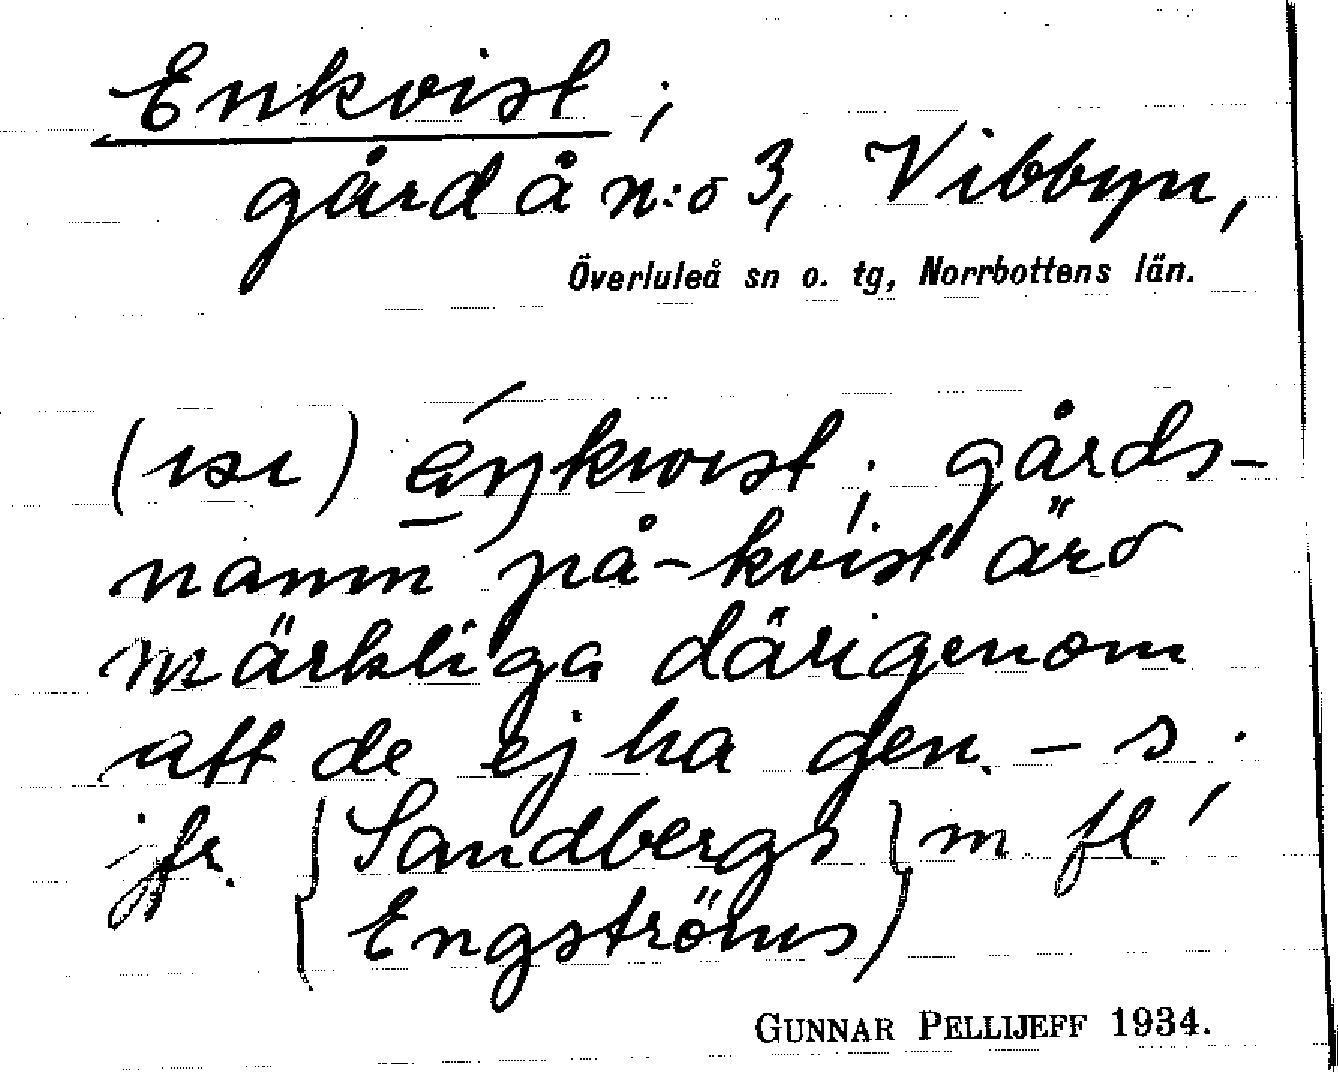 Enkvist ;
gård å n:o 3, Vibbyn,
Överluleå sn o. tg, Norrbottens län.
(ısı) é̠ŋkwıst ; gårds-
namn på -kvist äro
märkliga därigenom
att de ej ha gen. - s ;
jfr. { Sandbergs } m fl.
Engströms
GUNNAR PELLIJEFF 1934.